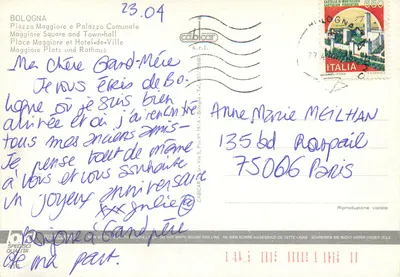 23.04
BOLOGNA
Piazza Maggiore e Palazzo Comunale
Maggiore Square and Town-hall
Place Majeure et Hotel-de-Ville
Maggiore Platz und Rathaus
Ma chère Grand-Mère
Je vous écris de Bo-
logne où je suis bien
arrivée et où j'ai rencontré
tous mes anciens amis-
Je pense tout de même
à vous et vous souhaite
un joyeux anniversaire
xxx Julie
à Grand père
de ma part.
Anne Marie MEILHAN
135 bd Raspail
75006 Paris
BOLOGNA
ITALIA
Riproduzione vietata